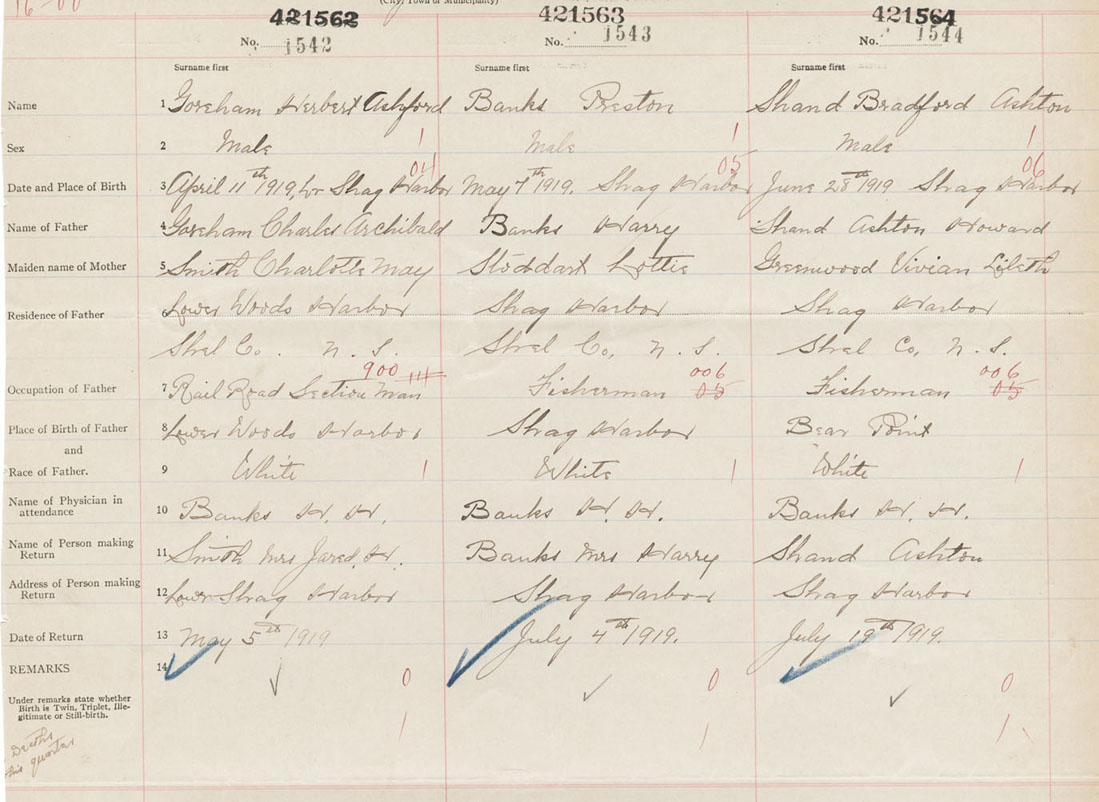 (City, Town or Municipality)
16-00
421562 421563 421564
No. 1542 No. 1543 No. 1544
Surname first Surname first Surname first
Name 1 Goreham Herbert Ashford Banks Preston Shand Bradford Ashton
Sex 2 Male 1 Male 1 Male 1
04 05 06
Date and Place of Birth 3 April 11th 1919, Lr Shag Harbor May 7th 1919, Shag Harbor June 28th 1919 Shag Harbor
Name of Father 4 Goreham Charles Archibald Banks Harry Shand Ashton Howard
Maiden name of Mother 5 Smith Charlotte May Stoddart Lottie Greenwood Vivian
Residence of Father 6 Lower Woods Harbor Shag Harbor Shag Harbor
Shel Co. N. S. Shel Co, N. S. Shel Co, N. S.
900 111 006 006
Occupation of Father 7 Rail Road Section Man Fisherman 05 Fisherman 05
Place of Birth of Father 8 Lower Woods Harbor Shag Harbor Bear Point
and
Race of Father. 9 White 1 White 1 White 1
Name of Physician in
attendance 10 Banks H. H. Banks H. H. Banks H. H.
Name of Person making
Return 11 Smith Mrs Jared. H. Banks Mrs Harry Shand Ashton
Address of Person making
Return 12 Lower Shag Harbor Shag Harbor Shag Harbor
Date of Return 13 May 5th 1919 July 4th 1919. July 19th 1919.
REMARKS 14
0 0 0
Under remarks state whether
Birth is Twin, Triplet, Ille-
gitimate or Still-birth.
1 1 1
Deaths
this quarter